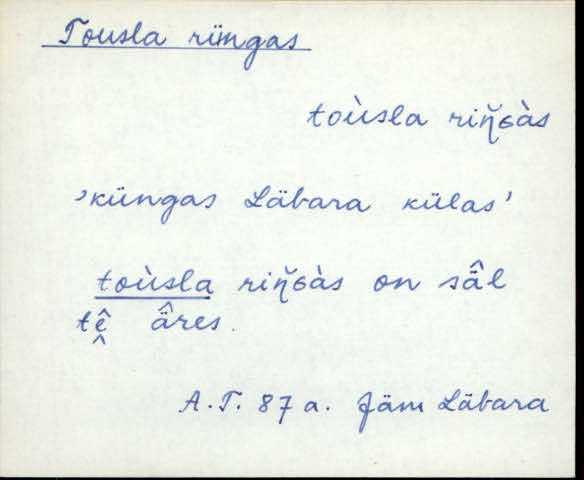 Tousla ringas
toùsla riŋ̆ɢàs
’küngas Läbara külas’
toùsla riŋ̆ɢàs on sä̂l
tê̬ ä̂res.
A.T. 87 a. Jäm Läbara